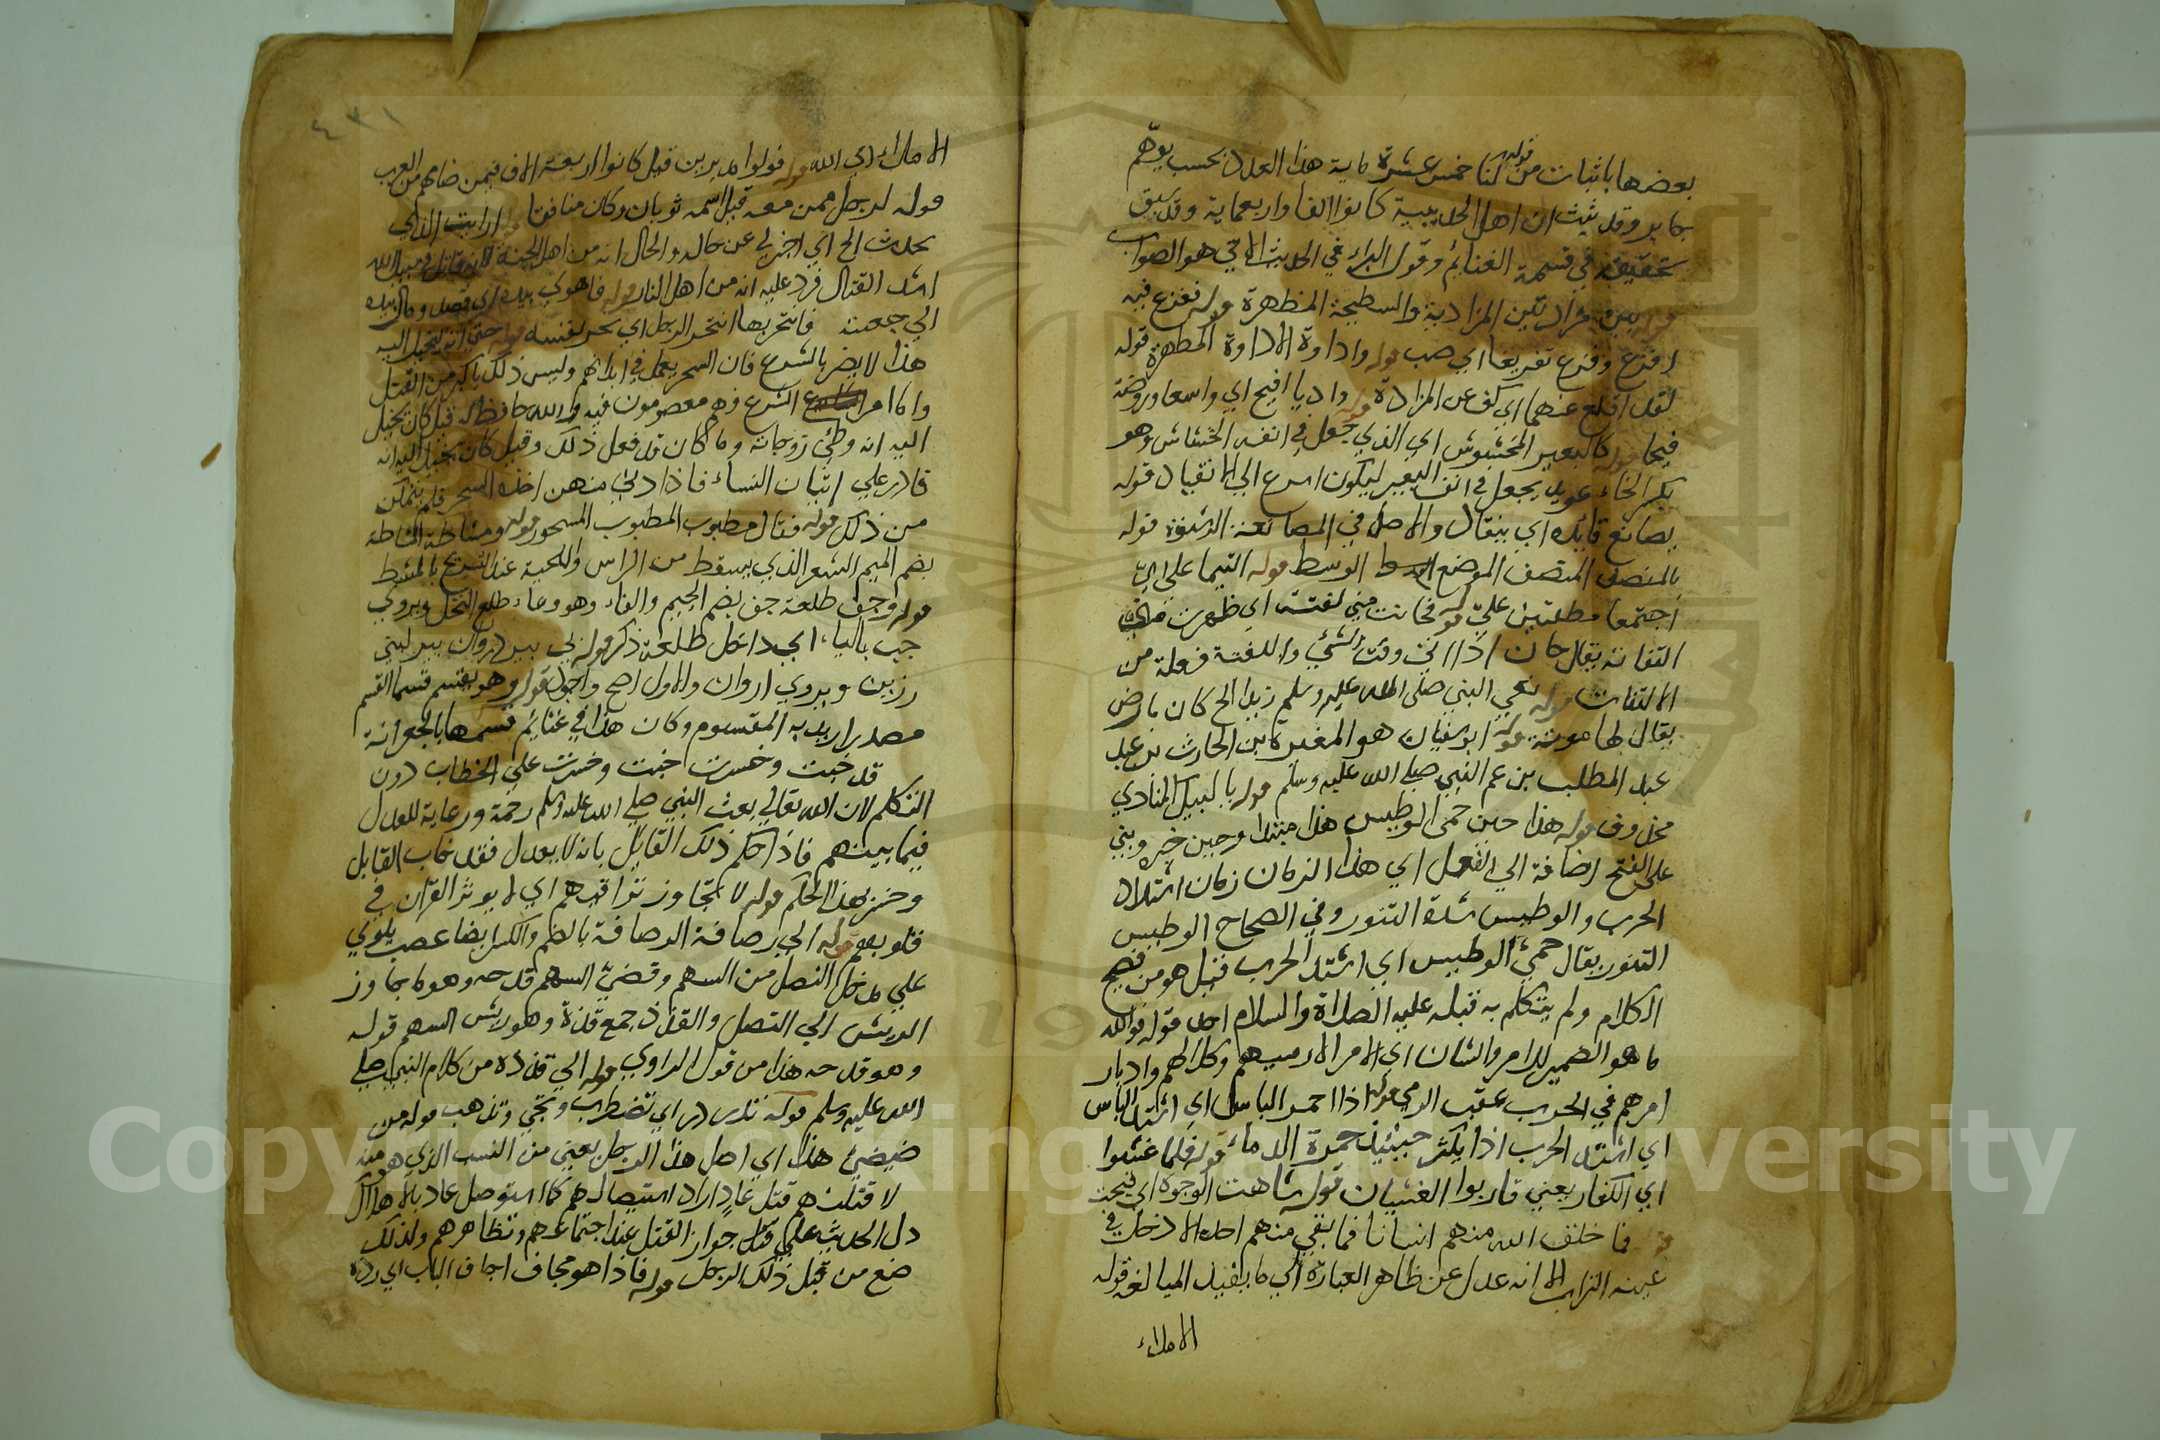 بعضها باثبات من قوله كنا خمس عشرة ماية هذا العدد بحسب توهم
جابر وقد ثبت ان اهل الحديبية كانوا الفا واربعماية وقد سبق
تحقيقه في قسمة الغنائم وقول البراء في الحديث الاتي هو الصواب
قوله بين مزادتين المزادة والسطيحة المطهرة قوله ففرغ فيه
افرغ وفرغ تفريغا اي صب قوله واداوة الاداوة المطهرة قوله
لقد اقلع عنهما اي كف عن المزادة قوله واديا افيح اي واسعا وروضة
فيحا قوله كالبعير المخشوش اي الذي جعل في انفه الخشاش وهو
بكسر الخاء عويد يجعل في انف البعير ليكون اسرع الي الانقياد قوله
يصانع قايده اي ينقاد والاصل في المصانعة الرشوة قوله
بالمنصف المنصف الموضع الوسط قوله التيما علي اي
اجتمعا مطلتين علي قوله فحانت مني لفتة اي ظهرت مني
التفاتة يقال حان اذا اتي وقت الشئ واللفتة فعلة من
الالتفات قوله نعي النبي صلى الله عليه وسلم زيدا الخ كان بارض
يقال لها موتة قوله ابو سفيان هو المغيرة بن الحارث بن عبد
عبد المطلب بن عم النبي صلى الله عليه وسلم قوله يا لبيك المنادي
محذوف قوله هذا حين حمي الوطيس هذا مبتدا وحين خبره وبني
على الفتح اضافة الي الفعل اي هذا الزمان زمان اشتداد
الحرب والوطيس شدة التنور وفي الصحاح الوطيس
التنور يقال حمي الوطيس اي اشتد الحرب قيل هو من فصيح
الكلام ولم يتكلم به قبله عليه الصلاة والسلام احد قوله فوالله
ما هو الضمير للامر والشان اي الامر الا رميهم وكلالهم وادبار
امرهم في الحرب عقب الرمي قوله اذا احمر الباس اي اشتد الباس
اي اشتد الحرب اذا يكثر حينئذ حمرة الدماء قوله فلما غشوا
اي الكفار يعني قاربوا الغشيان قوله شاهت الوجوه اي قبحت
فما خلف الله منهم انسانا فما بقي منهم احد الا دخل في
عينه التراب الا انه عدل عن ظاهر العبارة الي ما يفيد المبالغة قوله
الاملاء
٤٣١
الا ملاء اي الله قوله فولوا مدبرين قيل كانوا اربعة الاف فيمن ضامهم من العرب
قوله لرجل ممن معه قيل اسمه ثوبان وكان منافقا ارايت الذي
يحدث الخ اي اخبرني عن حاله والحال انه من اهل الجنة لانه قاتل في سبيل الله
اشد القتال فرد عليه انه من اهل النار قوله فاهوى بيده اي قصد ومال بيده
الي جعبته فانتحر بها انتحر الرجل اي نحر نفسه قوله حتى انه ليخيل اليه
هذا لا يضر بالشرع فان السحر يعمل في ابدانهم وليس ذلك باكبر من القتل
واما امر الشرع فهم معصومون فيه والله حافظه قيل كان يخيل
اليه انه وطئ زوجاته وما كان قد فعل ذلك وقيل كان يخيل اليه انه
قادر علي اتيان النساء فاذا دنى منهن اخذه السحر فلم يتمكن
من ذلك قوله فقال مطبوب المطبوب المسحور قوله ومشاطة المشاطة
بضم الميم الشعر الذي يسقط من الراس واللحية عند التسريح بالمشط
قوله وجف طلعة جف بضم الجيم والفاء وهو وعاء طلع النخل ويروي
جب بالباء اي داخل طلعة ذكر قوله في بير ذروان بير لبني
رزين ويروي اروان والاول اصح واجود قوله وهو يقسم قسما القسم
مصدر اريد به المقسوم وكان هذا في غنائم قسمها بالجعرانة
قد خبت وخسرت خبت وخسرت علي الخطاب دون
التكلم لان الله تعالي بعث النبي صلي الله عليه وسلم رحمة ورعاية للعدل
فيما بينهم فاذا حكم ذلك القايل بانه لا يعدل فقد خاب القايل
وخسر بهذا الحكم قوله لا يجاوز تراقيهم اي لا يوثر القران في
قلوبهم قوله الي رصافة الرصافة بالضم والكسر ايضا عصب يلوي
علي مدخل النصل من السهم وقضي السهم قدحه وهو ما جاوز
الريش الي النصل والقذذ جمع قذة وهو ريش السهم قوله
وهو قدحه هذا من قول الراوي قوله الي قذذه من كلام النبي صلي
الله عليه وسلم قوله تدردر اي تضطرب وتجي وتذهب قوله من
ضيضئ هذا اي اصل هذا الرجل يعني من النسب الذي هو منه
لاقتلنهم قتل عاد اراد استيصالهم كما استوصل عاد بالاهلاك
دل الحديث علي جواز القتل عند اجتماعهم وتظاهرهم ولذلك
منع من قتل ذلك الرجل قوله فاذا هو مجاف اجاف الباب اي رده
Copyright © King Saud University